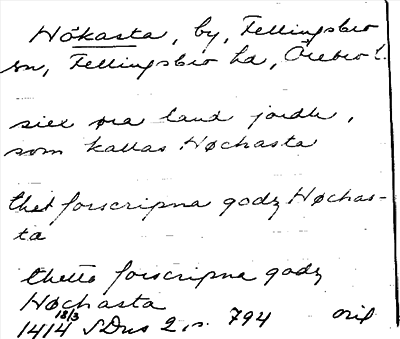 Hökasta, by, Fellingsbro
sn, Fellingsbro hd, Örebro l.
siex øra land jordh,
som kallas Høchasta
thet forscripna godz Høchas-
ta
thetto forscripna godz
Høchasta
18/3
1414 SDns 2, s. 794 orig